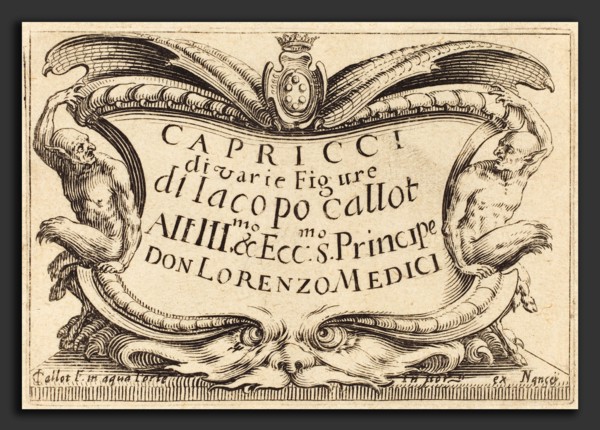 CAPRICCI
di varie Figure
di Iacopo Callot
All'Ill.mo & Ecc.mo S. Principe
DON LORENZO MEDICI
Callot F. in aqua forte ex Nancÿ